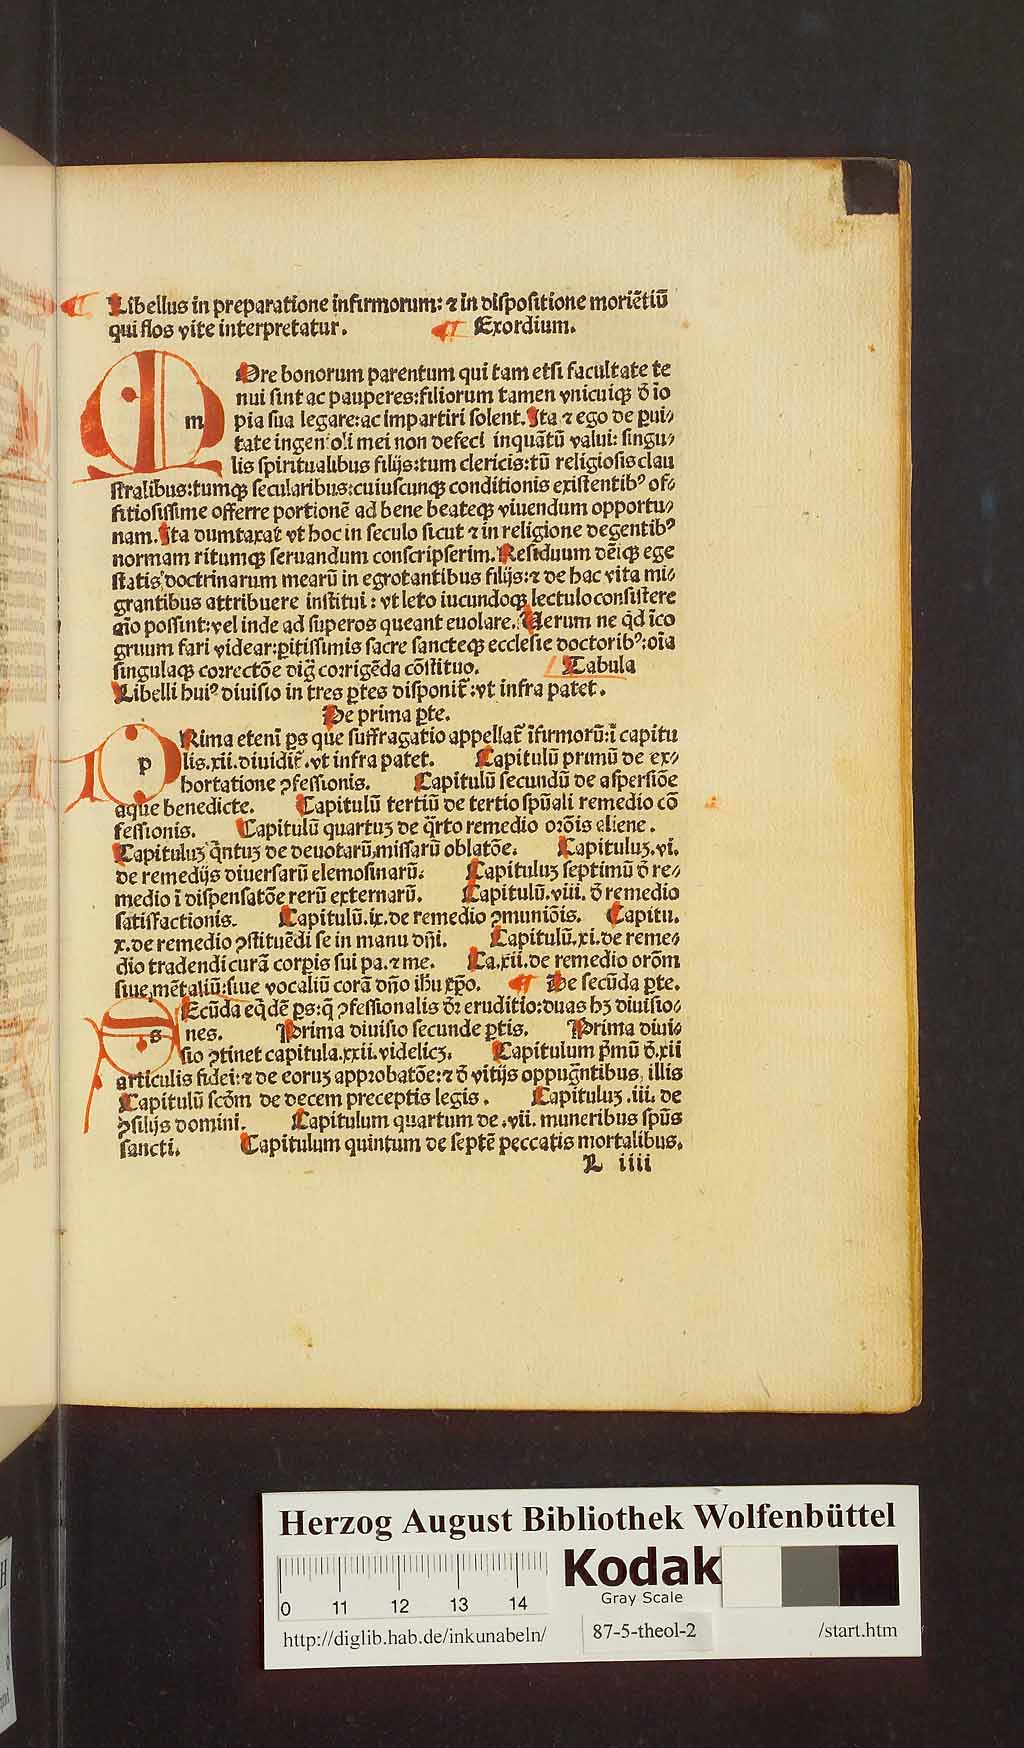 Libellus in preparatione infirmorum: ⁊ in dispositione moriẽtiũ
qui flos vite interpretatur. Exordium.
m Ore bonorum parentum qui tam etsi facultate te
nui sint ac pauperes: filiorum tamen vnicuiqꝫ ð īo
pia sua legare: ac impartiri solent. Ita ⁊ ego de pui⸗
tate ingenioli mei non defeci inquãtũ valui: singu⸗
lis spiritualibus filijs: tum clericis: tũ religiosis clau
stralibus: tumqꝫ secularibus: cuiuscunqꝫ conditionis existentibꝰ of⸗
fitiosissime offerre portionẽ ad bene beateqꝫ viuendum opportu⸗
nam. Ita dumtaxat vt hoc in seculo sicut ⁊ in religione degentibꝰ
normam ritumqꝫ seruandum conscripserim. Residuum dẽiqꝫ ege
statis doctrinarum mearũ in egrotantibus filijs: ⁊ de hac vita mi⸗
grantibus attribuere institui: vt leto iucundoqꝫ lectulo consistere
aĩo possint: vel inde ad superos queant euolare. Uerum ne qd̃ ĩco
gruum fari videar: ꝑitissimis sacre sancteqꝫ ecclesie doctoribꝰ: oĩa
singulaqꝫ correctõe dig̃ corrigẽda cõstituo. Tabula
Libelli huiꝰ diuisio in tres ꝑtes disponit̃: vt infra patet.
De prima ꝑte.
p Rima etenĩ ꝑs que suffragatio appellat̃ ĩfirmorũ: ĩ capitu
lis .xii. diuidit̃. vt infra patet. Capitulũ primũ de ex⸗
hortatione ꝯfessionis. Capitulũ secundũ de aspersiõe
aque benedicte. Capitulũ tertiũ de tertio spũali remedio cõ
fessionis. Capitulũ quartuꝫ de q̃rto remedio orõis aliene.
Capituluꝫ q̃ntuꝫ de deuotarũ missarũ oblatõe. Capituluꝫ .vi.
de remedijs diuersarũ elemosinarũ. Capituluꝫ septimũ ð re⸗
medio ĩ dispensatõe rerũ externarũ. Capitulũ .viii. ð remedio
satisfactionis. Capitulũ .ix. de remedio ꝯmuniõis. Capitu.
x. de remedio ꝯstituẽdi se in manu dñi. Capitulũ .xi. de reme⸗
dio tradendi curã corꝑis sui pa. ⁊ me. Ca. xii. de remedio orõm
siue mẽtaliũ: siue vocaliũ corã dño ihũ xp̃o. De secũda ꝑte.
s Ecũda eq̃dẽ ꝑs: q̃ ꝯfessionalis dr̃ eruditio: duas hꝫ diuisio⸗
nes. Prima diuisio secunde ꝑtis. Prima diui⸗
sio ꝯtinet capitula .xxii. videlicꝫ. Capitulum p̃mũ ð .xii
articulis fidei: ⁊ de eoruꝫ approbatõe: ⁊ ð vitijs oppug̃ntibus illis
Capitulũ scðm de decem preceptis legis. Capituluꝫ .iii. de
ꝯsilijs domini. Capitulum quartum de .vii. muneribus spũs
sancti. Capitulum quintum de septẽ peccatis mortalibus.
L iiii
Herzog August Bibliothek Wolfenbüttel
Kodak
Gray Scale
0 11 12 13 14
http://diglib.hab.de/inkunabeln/ 87-5-theol-2 /start.htm